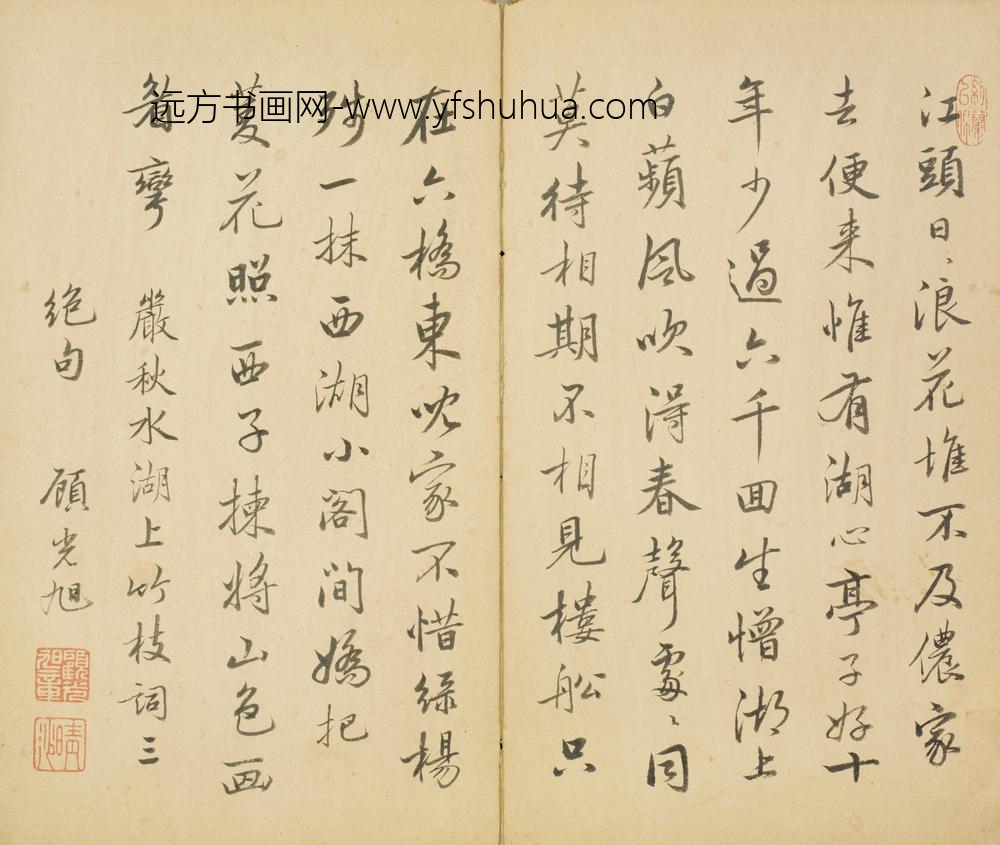 江頭日〻浪花堆不及儂家
去便来惟有湖心亭子好十
年少過六千回生憎湖上
白蘋風吹得春聲處〻同
莫待相期不相見樓船只
在六橋東家不惜綠楊
殘一抹西湖小閣間嬌把
菱花照西子揀將山色画
眉彎 嚴秋水湖上竹枝詞三
絶句 顧光旭
顧光旭章
晴沙
远方书画网-www.yfshuhua.com